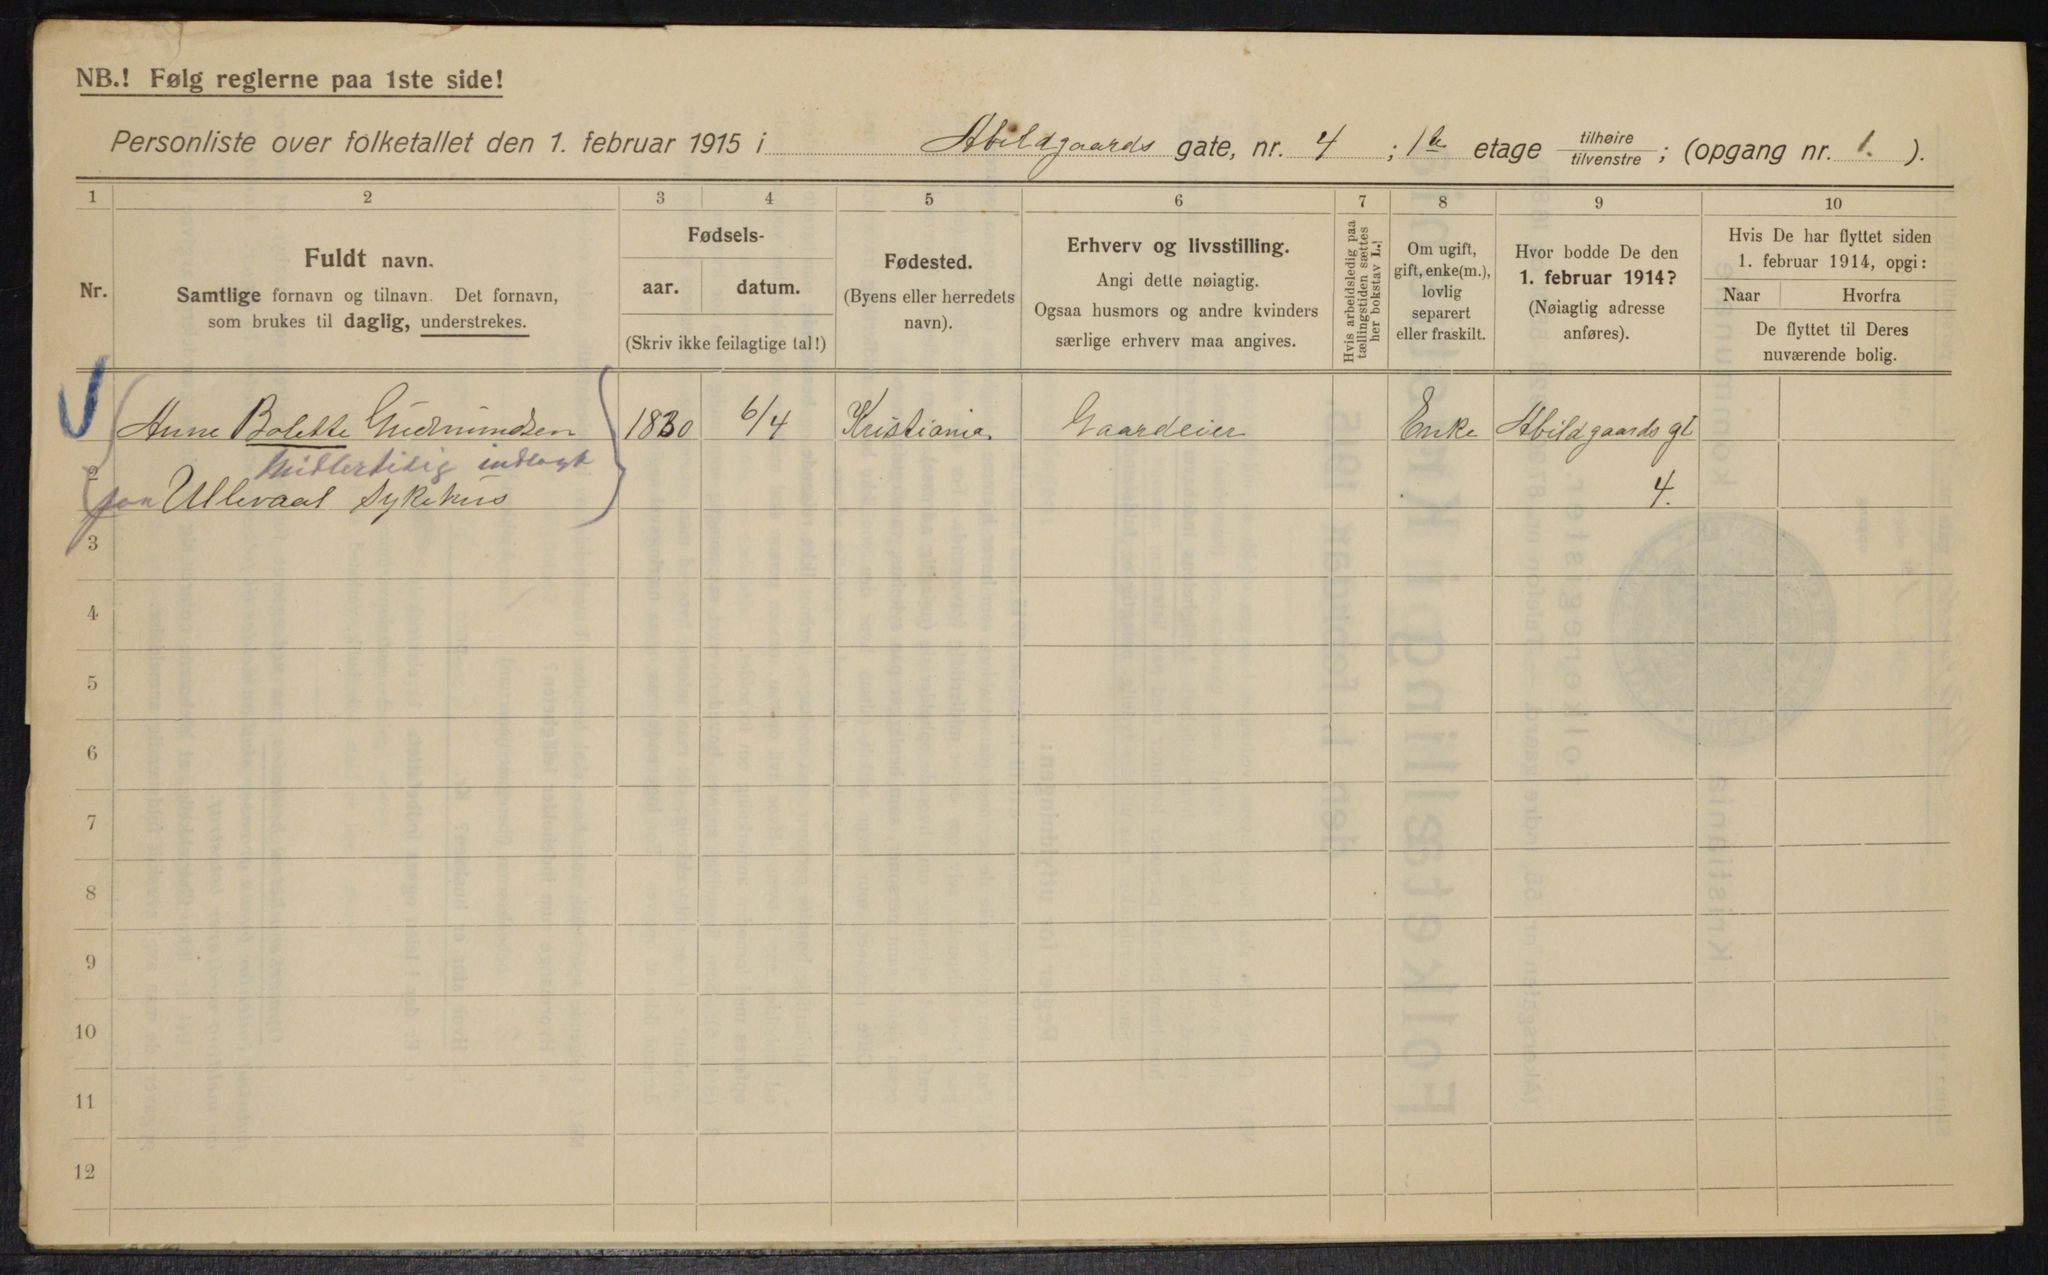 NB.! Følg reglerne paa 1ste side!
Personliste over folketallet den 1. februar 1915 i Abildgaards gate, nr. 4 ; 1ste etage tilhøire/tilvenstre ; (opgang nr. 1. ).
1 2 3 4 5 6 7 8 9 10
Nr.
Fuldt navn.
Samtlige fornavn og tilnavn. Det fornavn,
som brukes til daglig, understrekes.
Fødsels-
aar. datum.
(Skriv ikke feilagtige tal!)
Fødested.
(Byens eller herredets
navn).
Erhverv og livsstilling.
Angi dette nøiagtig.
Ogsaa husmors og andre kvinders
særlige erhverv maa angives.
Hvis arbeidsledig paa
tællingstiden sættes
her bokstav L.)
Om ugift,
gift, enke(m.),
lovlig
separert
eller fraskilt.
Hvor bodde De den
1. februar 1914?
(Nøiagtig adresse
anføres).
Hvis De har flyttet siden
1. februar 1914, opgi:
Naar Hvorfra
De flyttet til Deres
nuværende bolig.
Anne Bolette Gudmundsen 1830 6/4 Kristiania Gaardeier Enke Abildgaards gt
midlertidig indlagt
2 paa Ullevaal Sykehus 4.
3
4
5
6
7
8
9
10
11
12